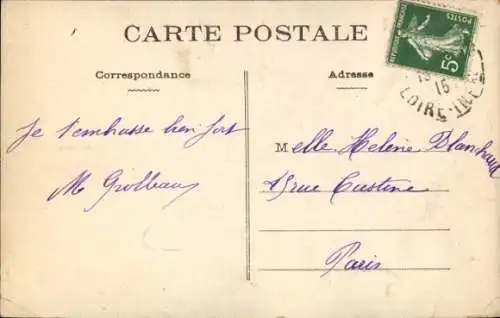 CARTE POSTALE
Correspondance
Adresse
Je t'embrasse bien fort
M
Melle Helene Blanchard
15 rue Custine
Paris
POSTES
5c
15
LOIRE-INF